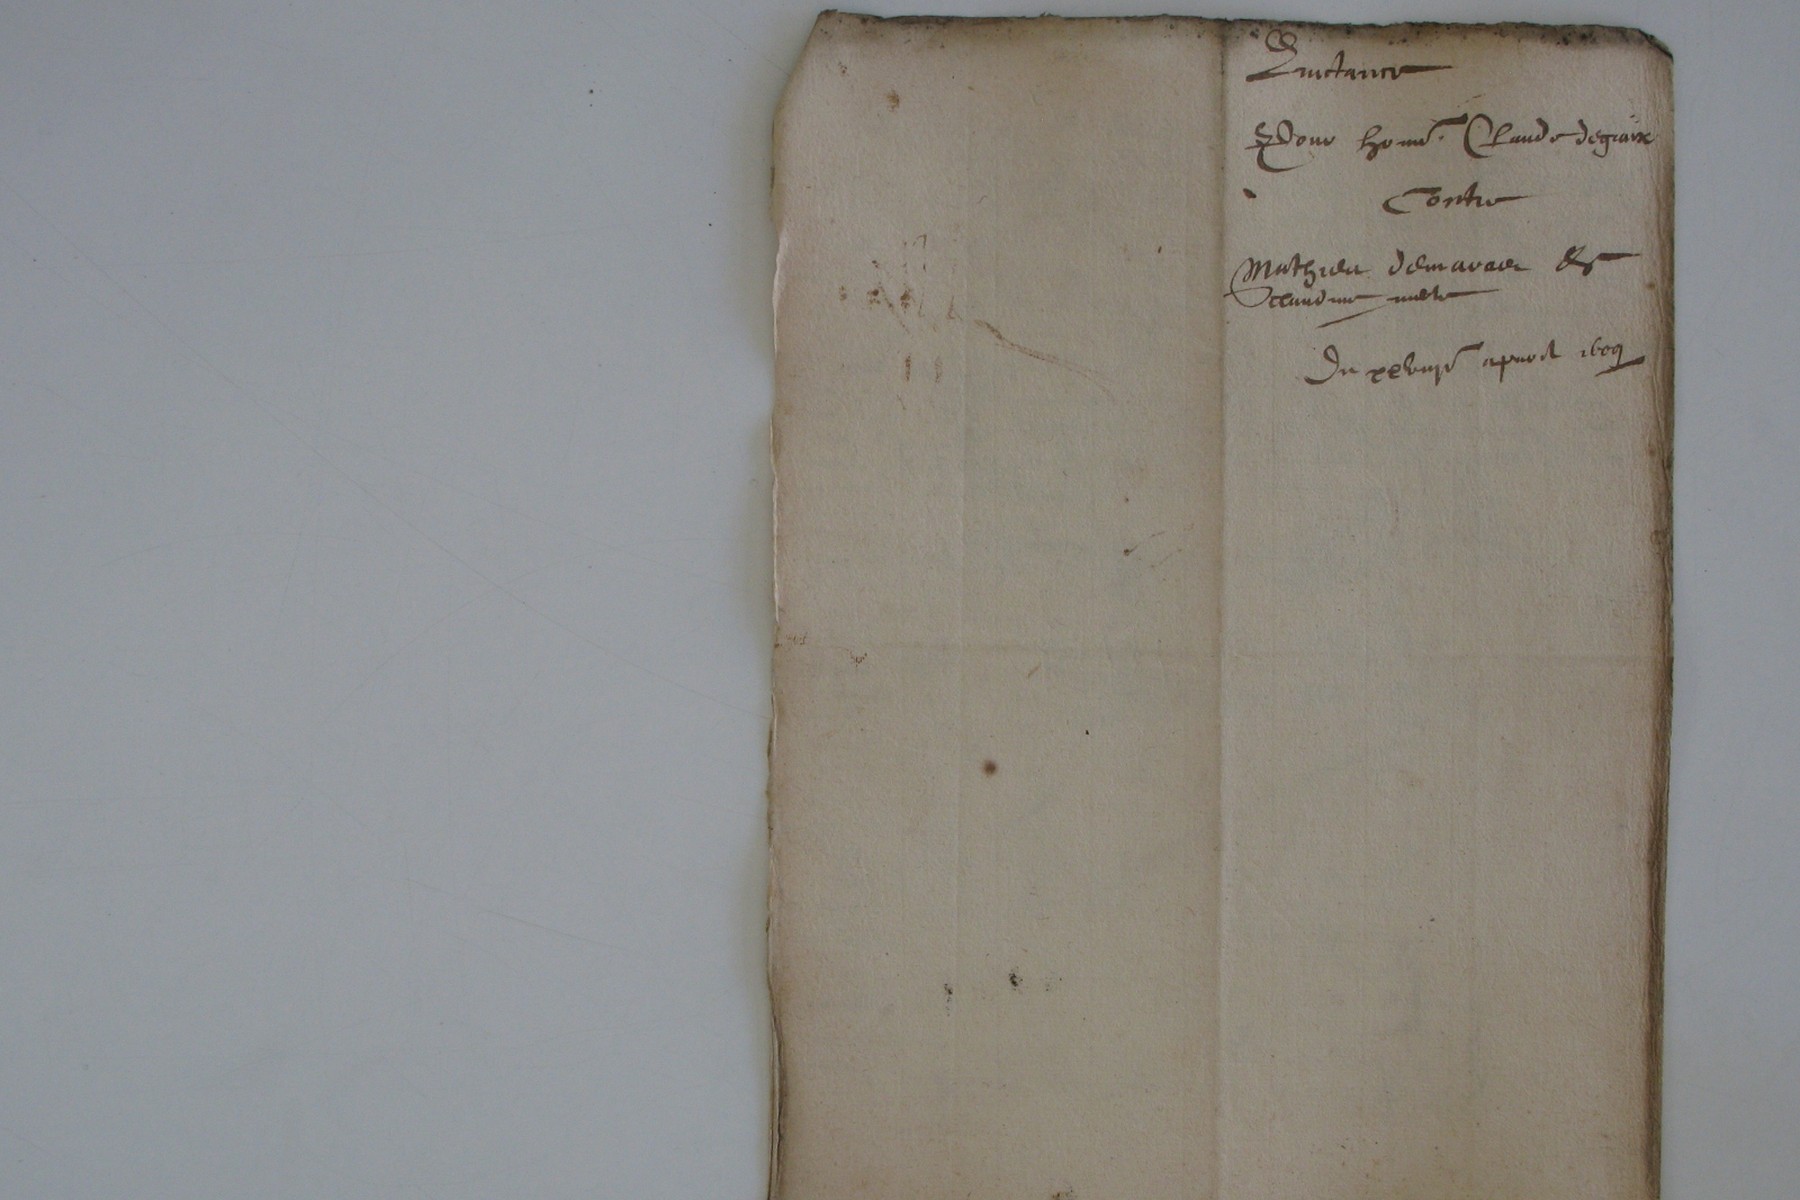 Quictance
Pour hon.e Claude degaix
Contre
Mathieu demarae &
Claudine
Du apuril 1609